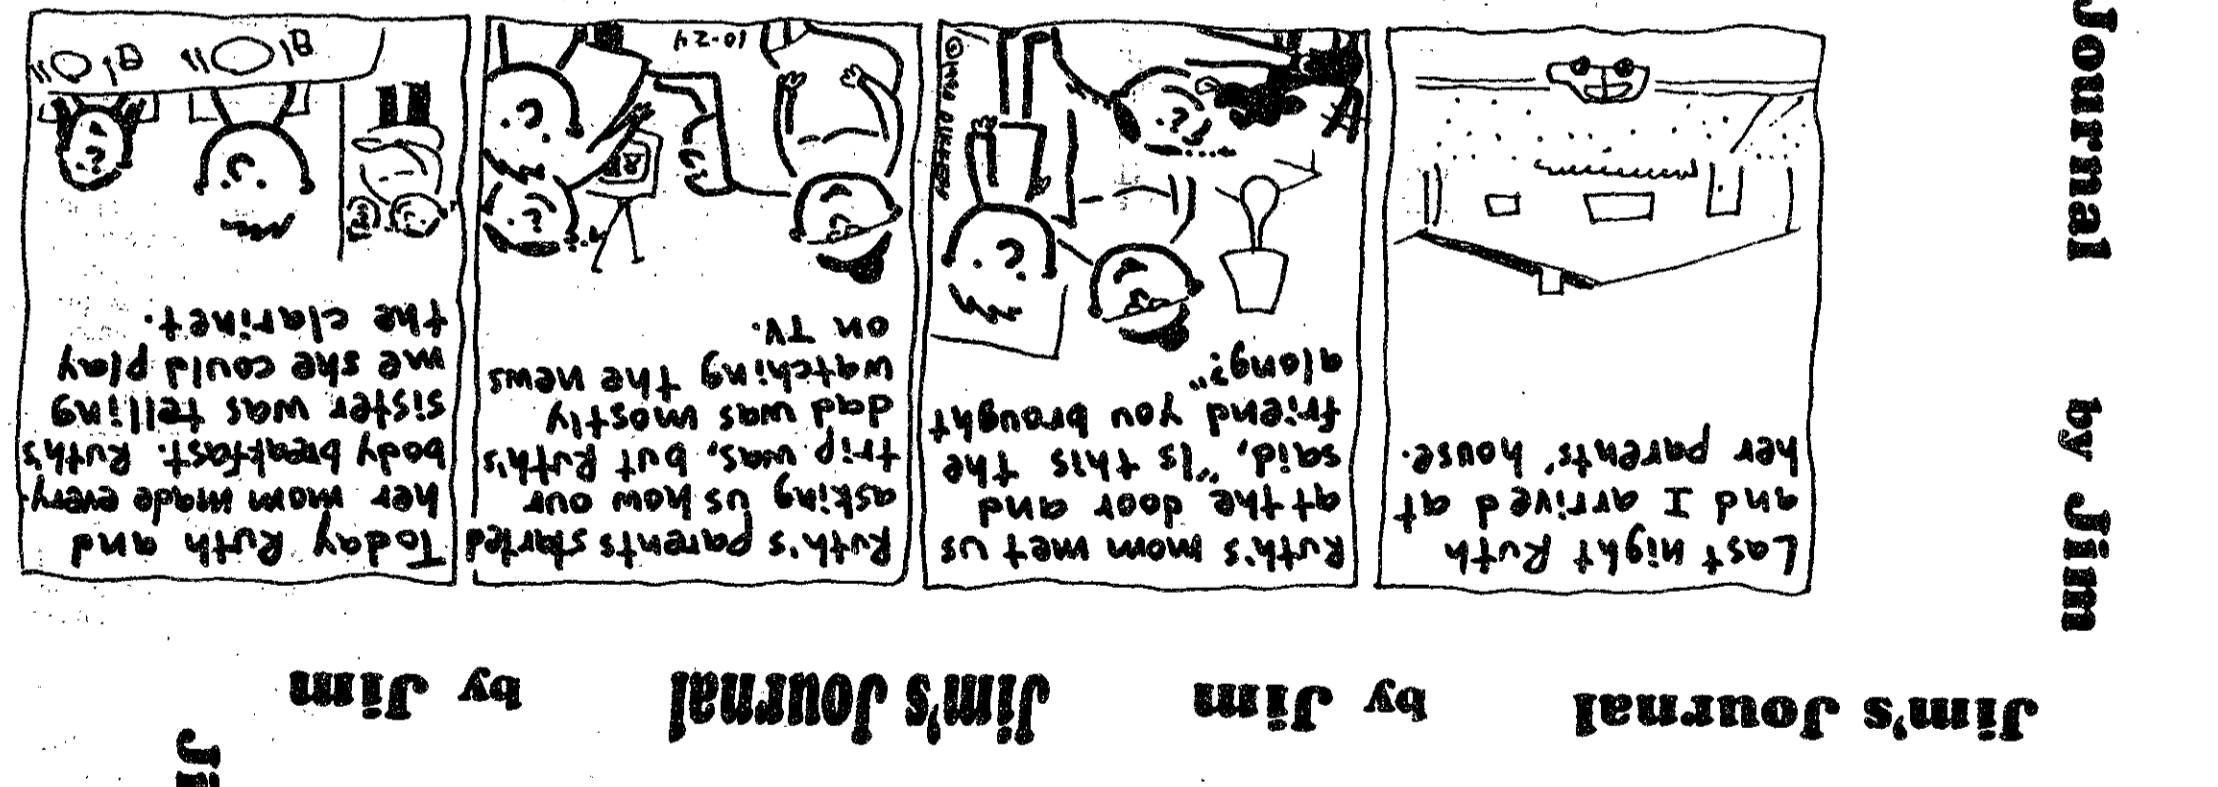 Jim's Journal by Jim Jim's Journal by Jim
Last night Ruth
and I arrived at
her parents' house.
Ruth's mom met us
at the door and
said, "Is this the
friend you brought
along?"
Ruth's parents started
asking us how our
trip was, but Ruth's
dad was mostly
watching the news
on TV.
10-24
Today Ruth and
her mom made every-
body breakfast. Ruth's
sister was telling
me she could play
the clarinet.
Journal by Jim
Ji